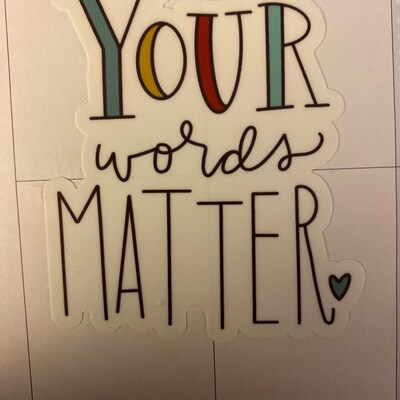 YOUR
words
MATTER